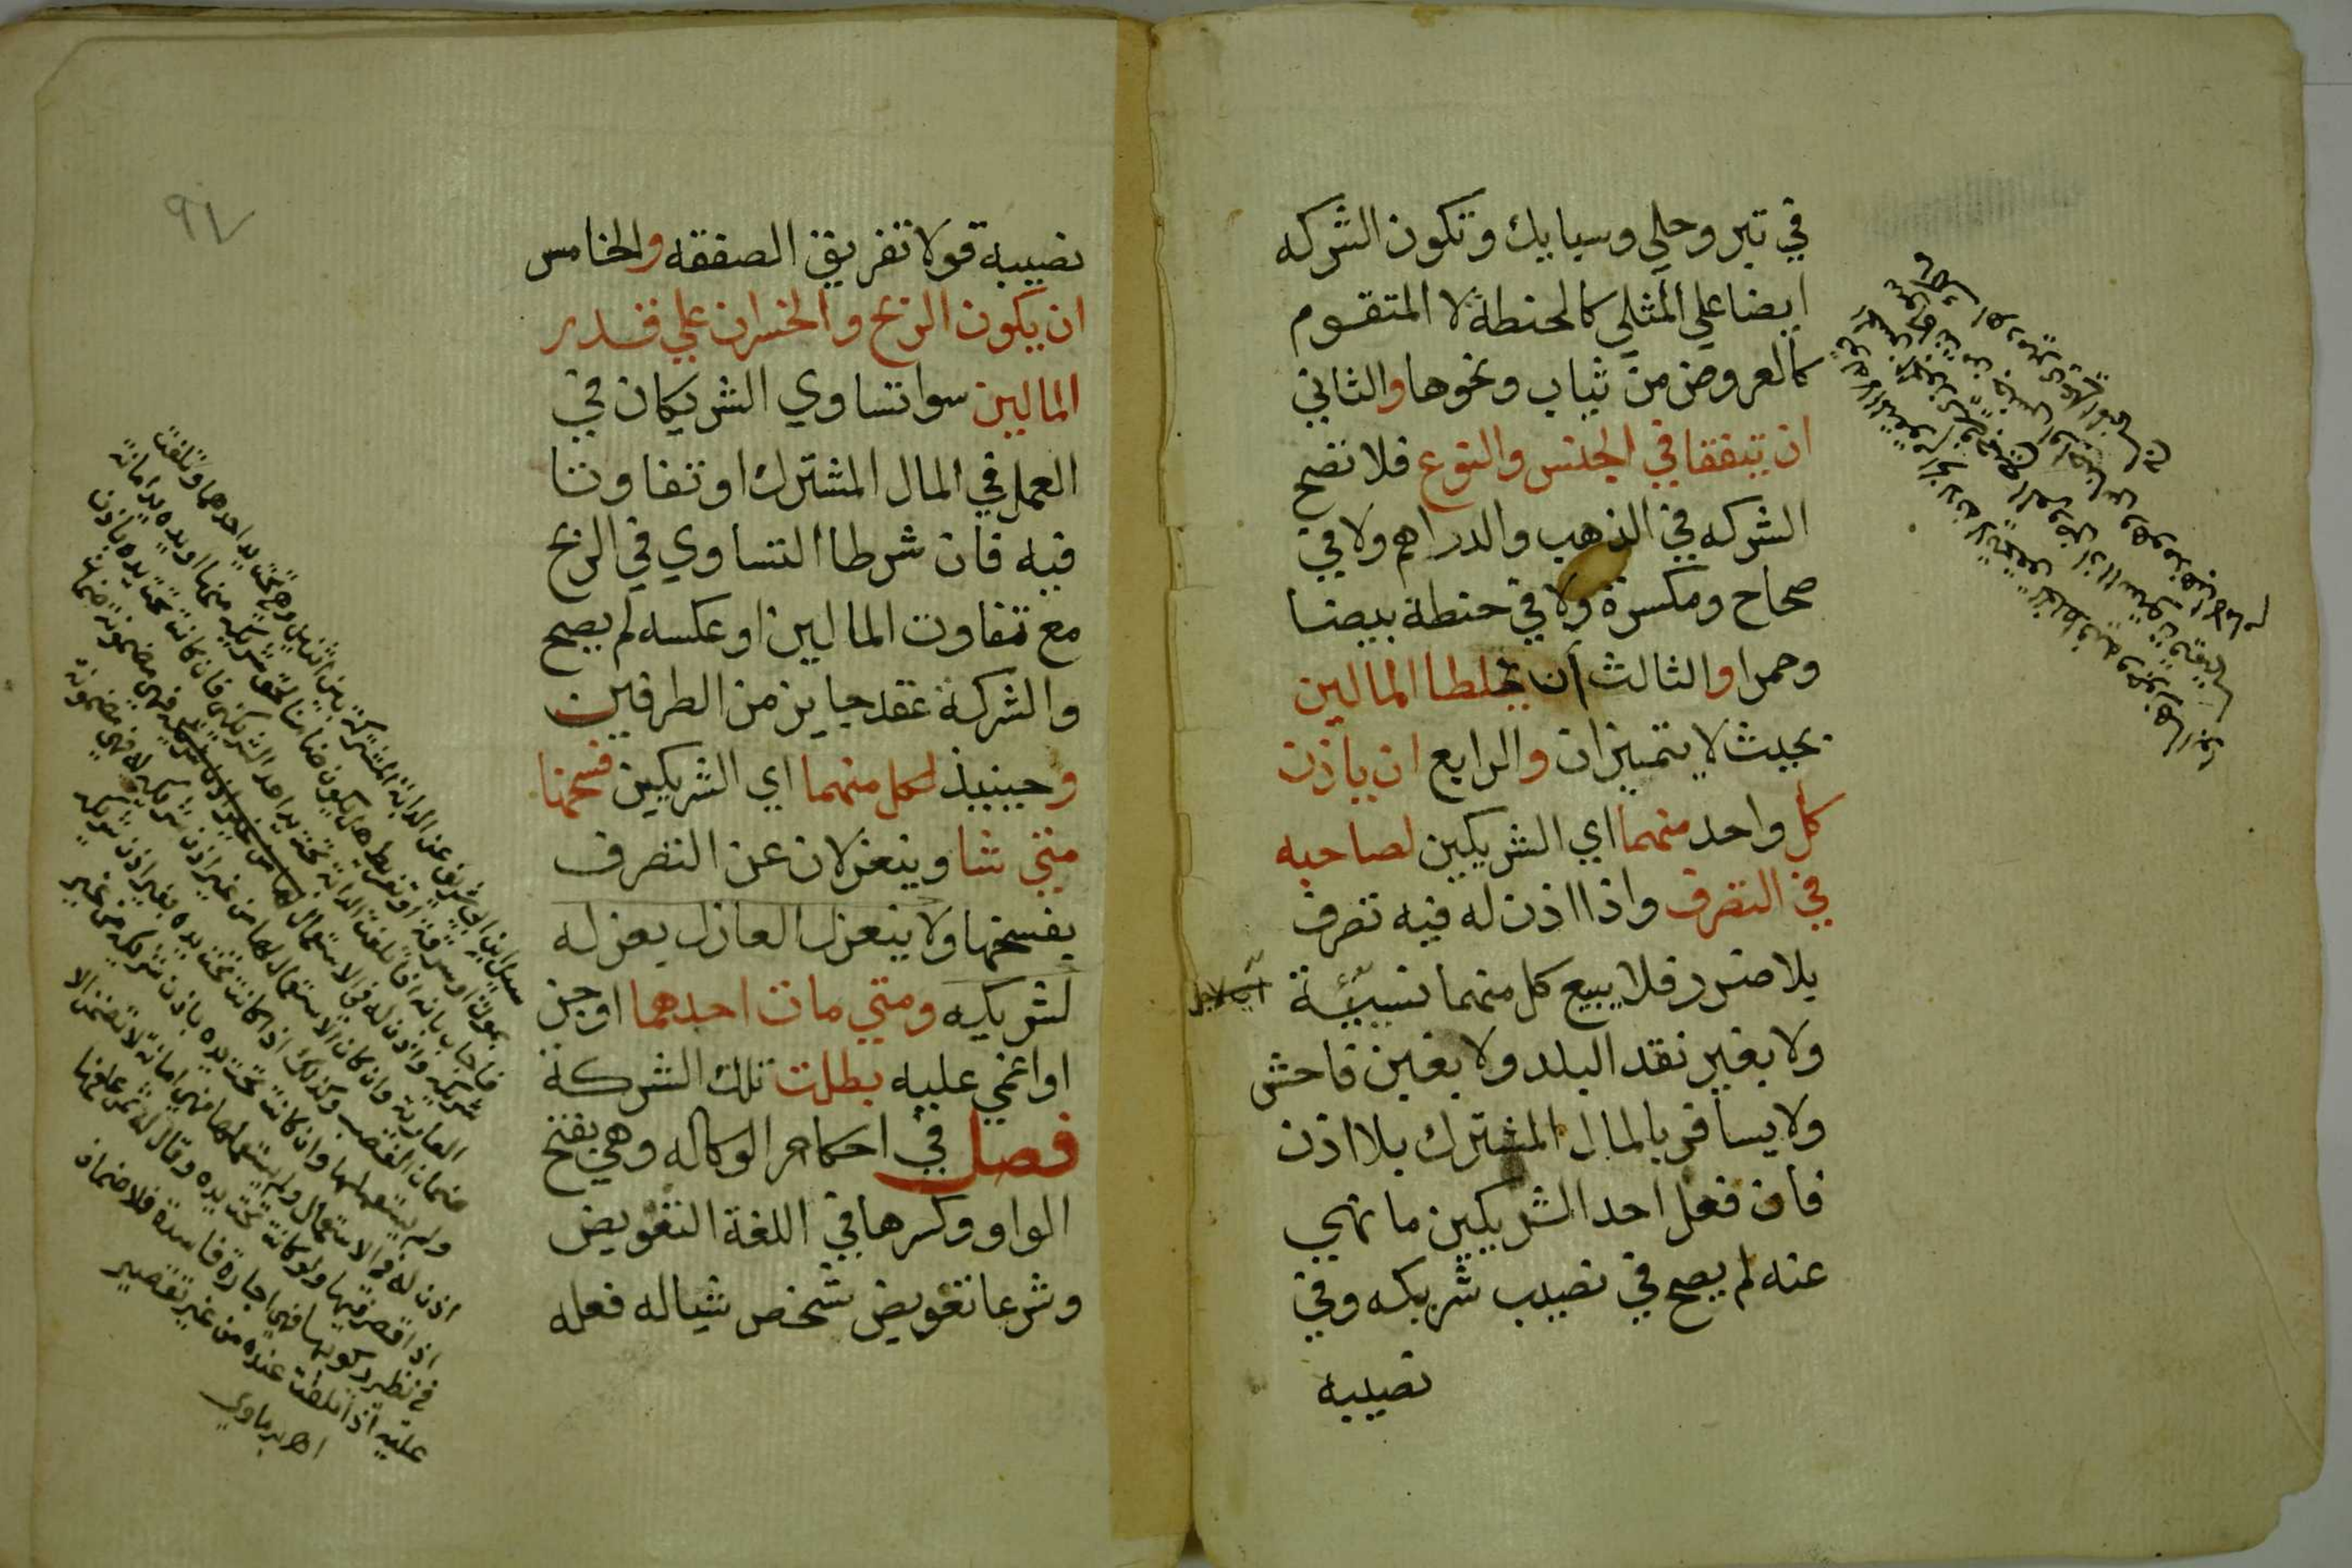 في تبر وحلي وسبايك وتكون الشركه
ايضا علي المثلي كالحنطة لا المتقوم
كالعروض من ثياب ونحوها والثاني
ان يتفقا في الجنس والنوع فلا تصح
الشركه في الذهب والدراهم ولا في
صحاح ومكسرة ولا في حنطة بيضا
وحمرا والثالث أن يخلطا المالين
بحيث لا يتميزان والرابع ان ياذن
كل واحد منهما اي الشريكين لصاحبه
في التصرف واذا اذن له فيه تصرف
بلا ضرر فلا يبيع كل منهما نسيئة
ولا بغير نقد البلد ولا بغبن فاحش
ولا يسافر بالمال المشترك بلا اذن
فان فعل احد الشريكين ما نهي
عنه لم يصح في نصيب شريكه وفي
نصيبه
٩٧
نصيبه قولا تفريق الصفقه والخامس
ان يكون الربح والخسران علي قدر
المالين سوا تساوي الشريكان في
العمل في المال المشترك او تفاوتا
فيه فان شرطا التساوي في الربح
مع تفاوت المالين او عكسه لم يصح
والشركة عقد جايز من الطرفين
وحينيذ لكل منهما اي الشريكين فسخها
متي شا وينعزلان عن التصرف
بفسخها ولا ينعزل العازل بعزله
لشريكه ومتي مات احدهما او جن
او اغمي عليه بطلت تلك الشركة
فصل في احكام الوكاله وهي بفتح
الواو وكسرها في اللغة التفويض
وشرعا تفويض شخص شياله فعله
سيل ابن ابي شريف عن الدابة المشتركة بين اثنين وهي تحت يد احدهما وتلفت
بموت او سرقة او تفريط هل يكون ضامنا لحق شريكه منها او يده يد امانة
فاجاب بانه اذا تلفت الدابة تحت يد احد الشريكين فان كانت تحت يده باذن
شريكه واذن له في الاستعمال
العارية وان كان الاستعمال لها من غير اذن شريكه له فهي مضمونة
ضمان الغصب وكذلك اذا كانت تحت يده بغير اذن شريكه
ولم يستعملها وان كانت تحت يده باذن شريكه من غير
اذن له في الاستعمال ولم يستعملها فهي امانة لا تضمن الا
اذا قصر فيها ولو كانت تحت يده وقال له علفها
في نظير ركوبها فهي اجارة فاسدة فلا ضمان
عليه اذا تلفت عنده من غير تقصير
اهـ برماوي